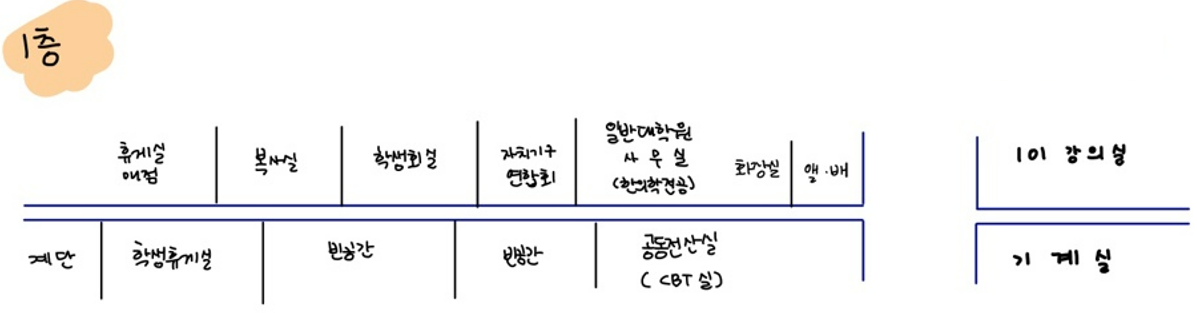 1층
휴게실
매점
복사실
학생회실
자치기구
연합회
일반대학원
사무실
(한의학전공)
화장실
엘·베
101 강의실
계단
학생휴게실
빈공간
빈공간
공동전산실
(CBT실)
기계실